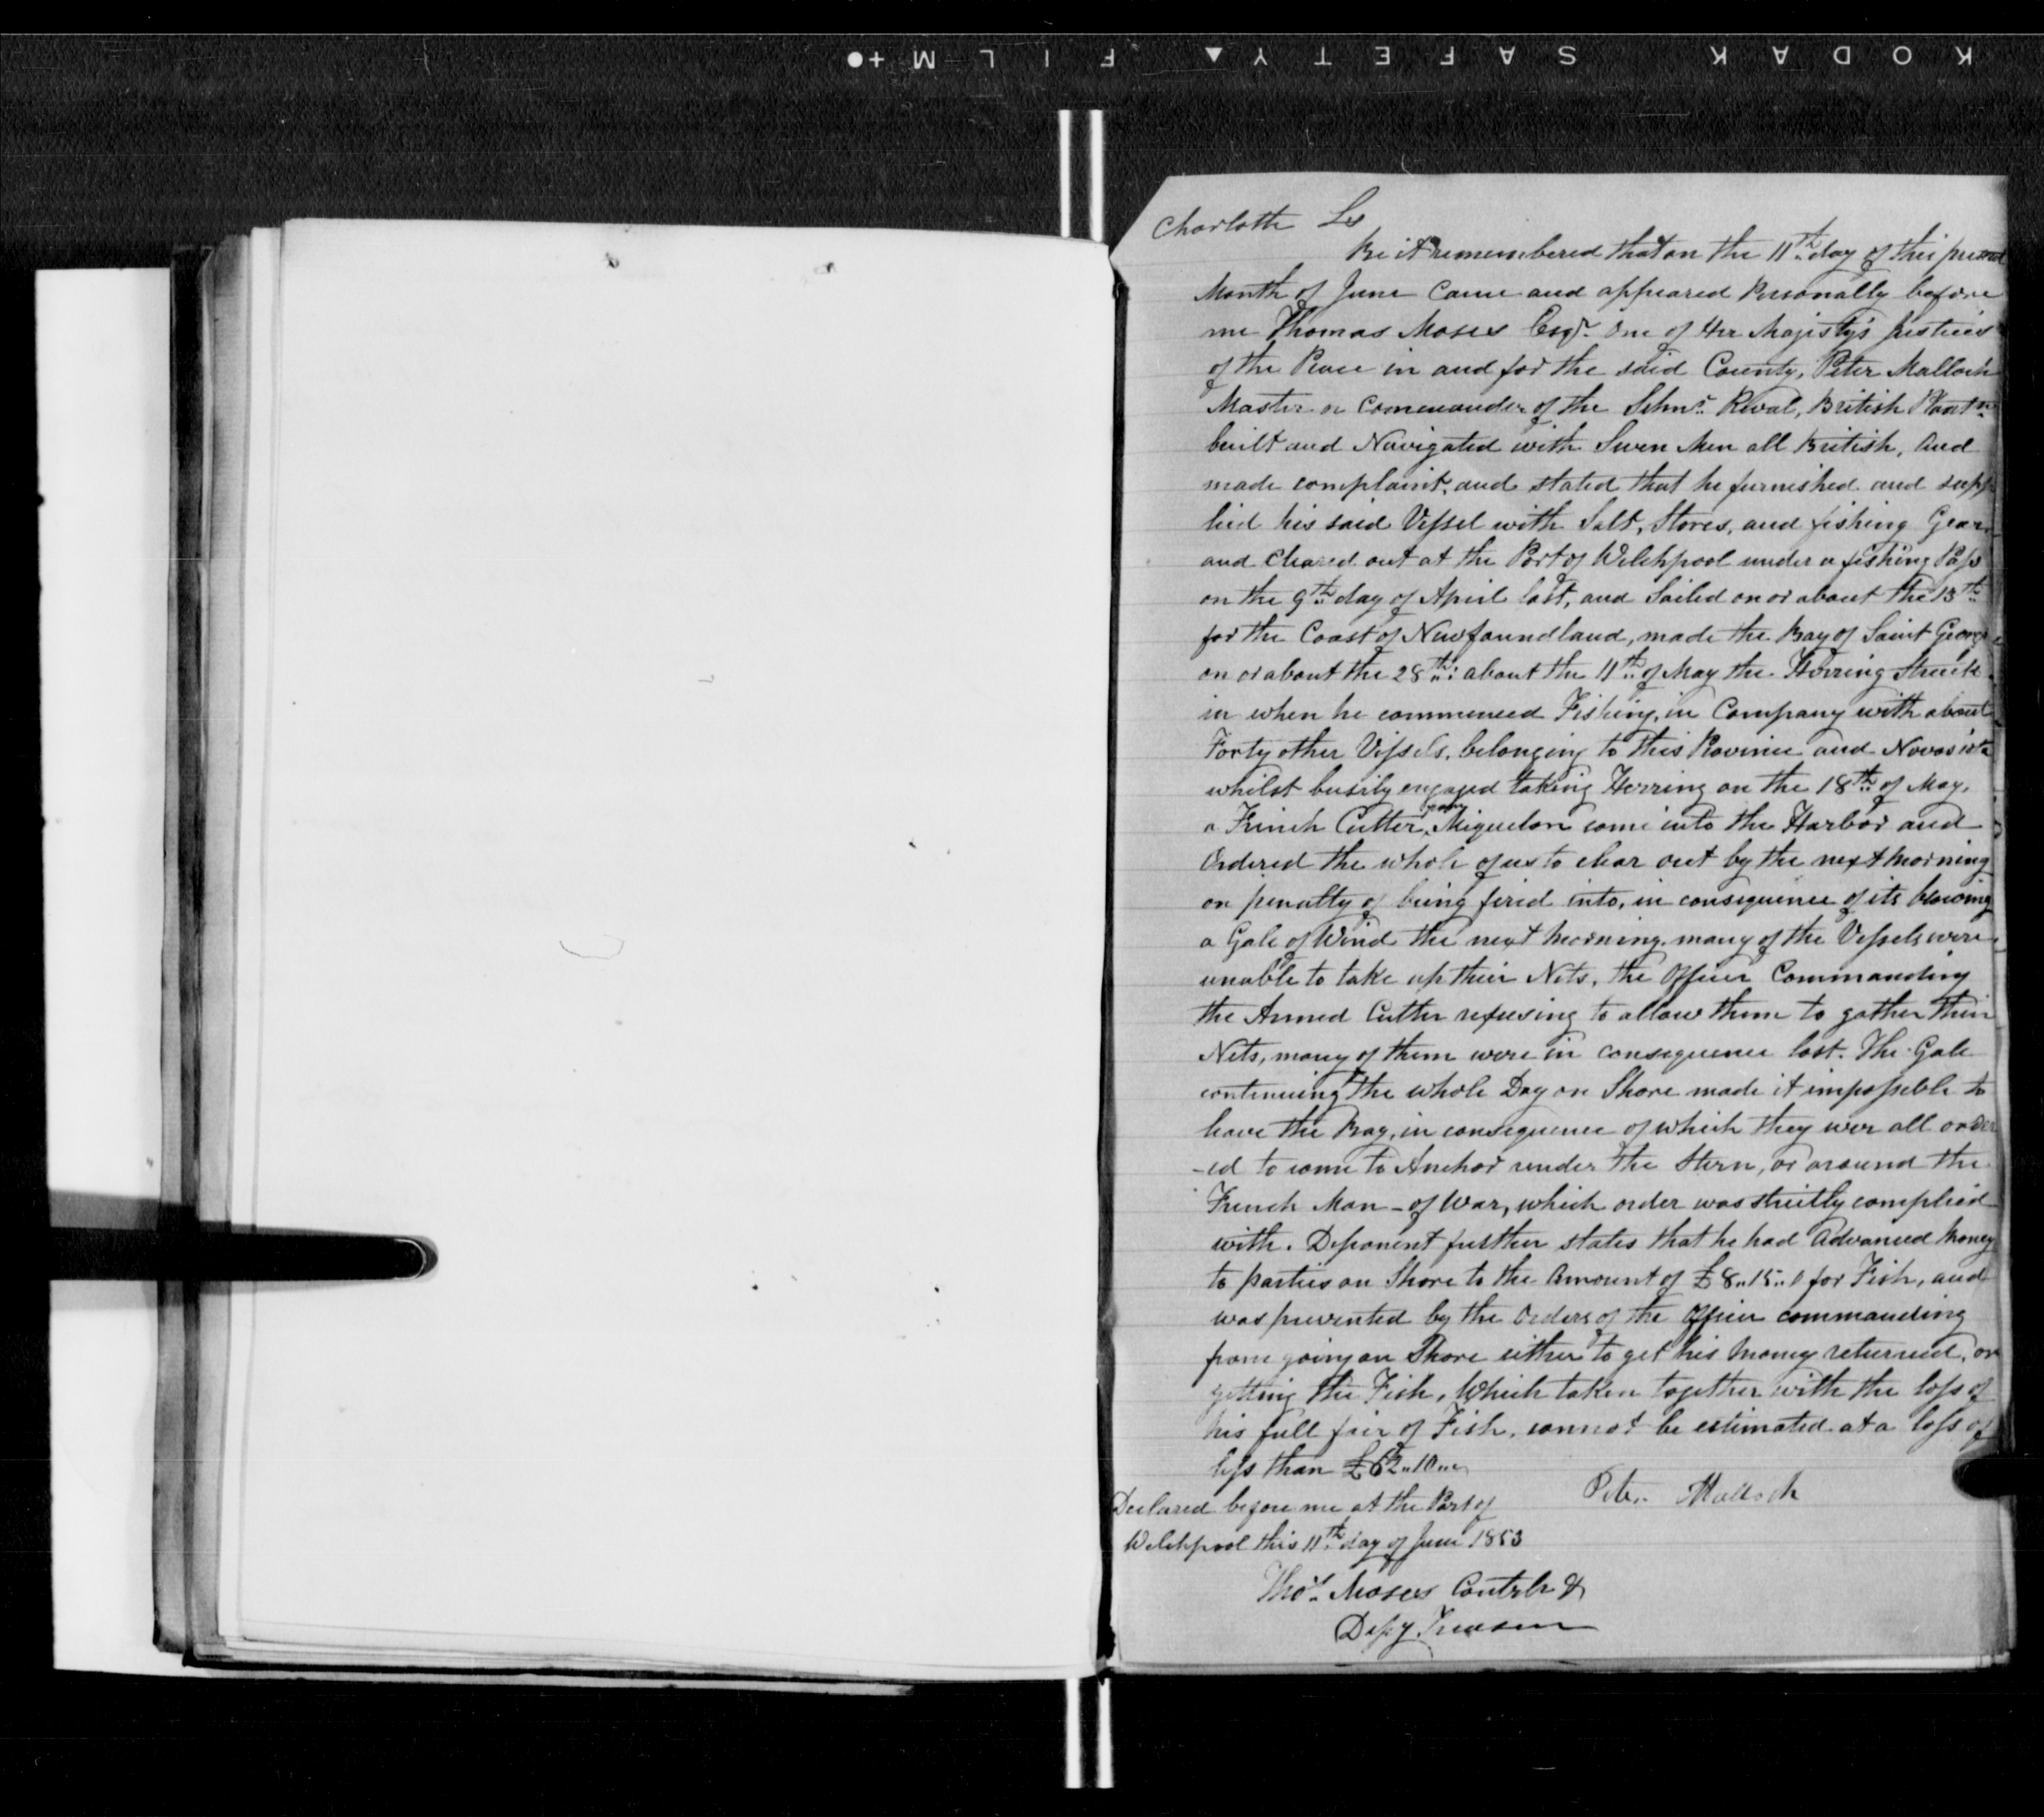 KODAK SAFETY ▲ FILM +●
Charlotte Ss
Be it remembered that on the 11th day of this present
Month of June Came and appeared Personally before
me Thomas Moses Esqr. One of Her Majisty's Justices
of the Peace in and for the said County, Peter Malloch
Master or Commander of the Schnr. Rival, British Plantn.
built and Navigated with Seven Men all British, and
made complaint, and stated that he furnished and supp
lied his said Vessel with Salt, Stores, and fishing Gear
and Cleared out at the Port of Welchpool under a fishing Pass
on the 9th day of April last, and Sailed on or about the 13th
for the Coast of Newfoundland, made the Bay of Saint George
on or about the 28th: about the 11th of May the Herring Struck
in when he commenced Fishing, in Company with about
Forty other Vessels, belonging to this Province and Novascota
whilst busily engaged taking Herring on the 18th of May,
a French Cutter, from Miquelon come into the Harbor and
Ordered the whole of us to clear out by the next morning
on penalty of being fired into, in consequence of its blowing
a Gale of Wind the next morning, many of the Vessels were
unable to take up their Nets, the Officer Commanding
the Armed Cutter refusing to allow them to gather their
Nets, many of them were in consequence lost. The Gale
continuing the whole Day on Shore made it impossible to
leave the Bay, in consequence of which they wer all order
-ed to come to Anchor under the Stern, or around the
French Man-of War, which order was strictly complied
with. Deponent further states that he had Advanced Money
to parties on Shore to the Amount of £8..15..0 for Fish, and
was prevented by the Orders of the Officer commanding
from going on Shore either to get his Money returned, or
getting the Fish, Which taken together with the loss of
his full fair of Fish, cannot be estimated at a loss of
less than £62..10..
Peter Malloch
Declared before me at the Port of
Welchpool this 11th day of June 1853
Thos. Moses Contrlr &
Depy Treasr